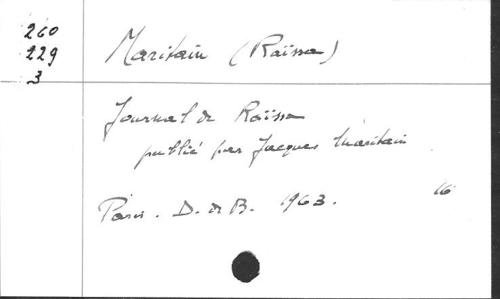 260
229
3
Maritain (Raïssa)
Journal de Raïssa
publié par Jacques Maritain
16
Paris. D. de B. 1963.